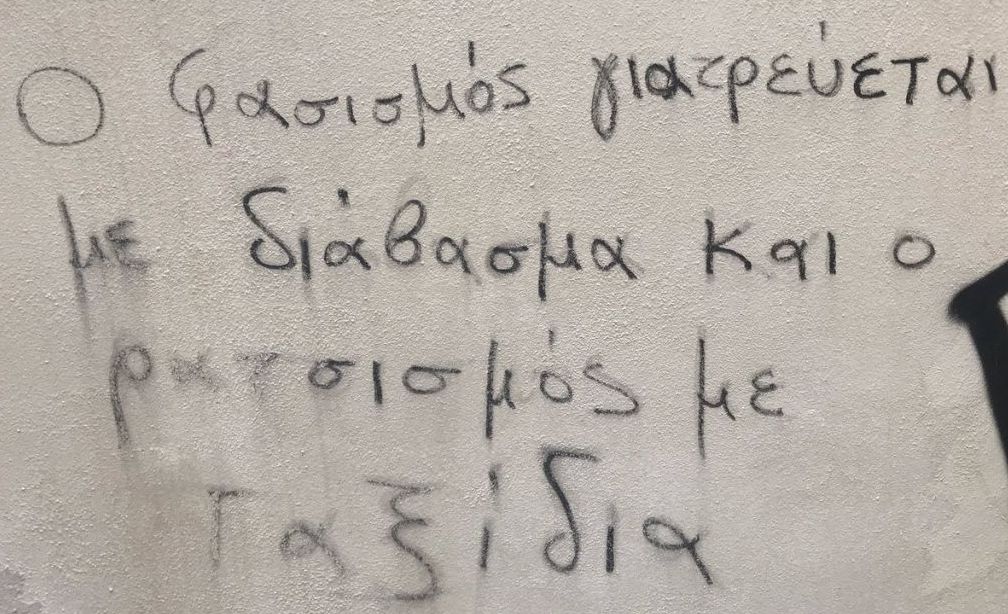 Ο φασισμός γιατρεύεται
με διάβασμα και ο
ρατσισμός με
ταξίδια